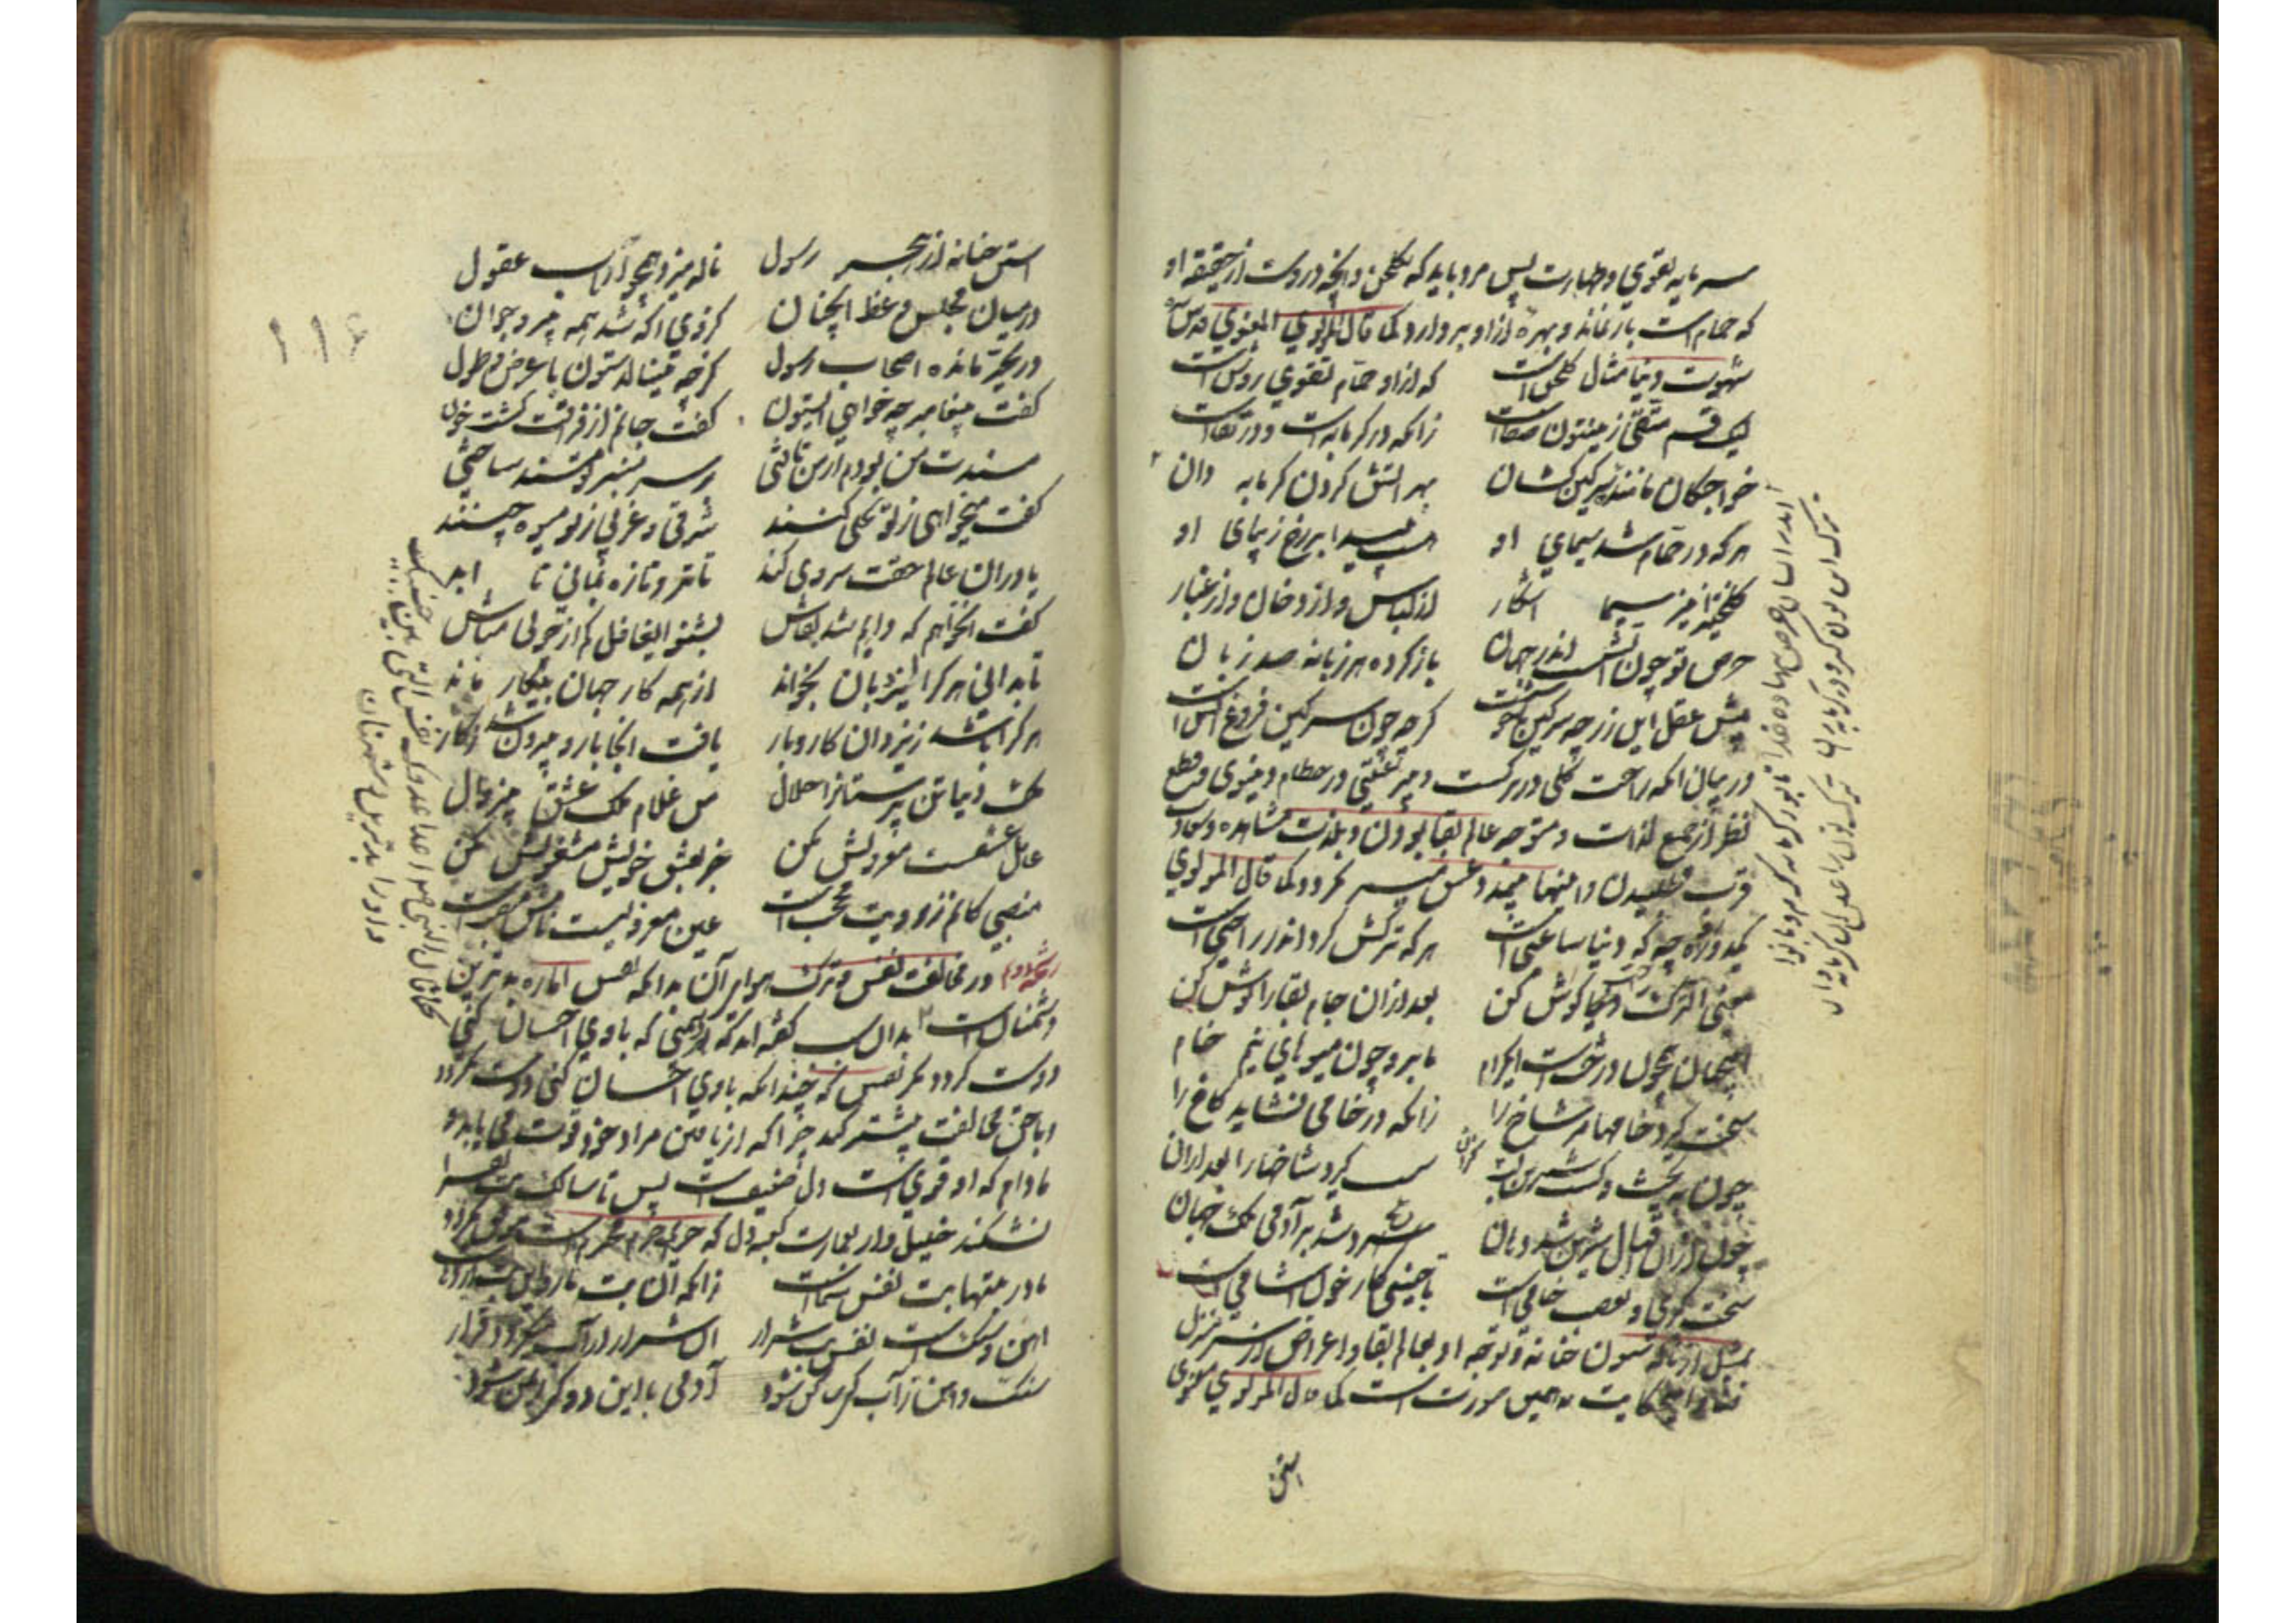 سرمایه تقوی و طهارت پس مرد باید که بگلخن و آنچه دروست از حقیقه او
که حمام است باز نماند و بهره ازو بردارد کما قال المولوی المعنوی قدس سره
شهوت دنیا مثال گلخن است که ازو حمام تقوی روشن است
لیک قسم متقی زین تون صفاست زانکه در گرمابه است و در نقاست
خواجگان مانند سرگین کشان بهر آتش کردن گرمابه دان
هر که در حمام شد سیمای او هست پیدا بر رخ زیبای او
گلخنی را نیز سیما آشکار از لباس و از دخان و از غبار
حرص تو چون آتشست اندر جهان باز کرده هر زبانه صد زبان
پیش عقل این زر چه سرگین ناخوشست گرچه چون سرگین فروغ آتش است
در بیان آنکه راحت کلی در ترکست و بی تعلقی در حطام دنیوی و قطع
نظر از جمیع لذات و متوجه عالم بقا بودن و بلذت مشاهده و سعادت
قرب رسیدن و اینها بی جد و عشق میسر نگردد کما قال المولوی
یکدو روزه چه که دنیا ساعتی است هر که ترکش کرد اندر راحتی است
معنی الترک راحت گوش کن بعد ازان جام بقا را نوش کن
این جهان همچون درخت است ای کرام ما برو چون میوهای نیم خام
سخت گیرد خامها مر شاخ را زانکه در خامی نشاید کاخ را
چون بپخت و گشت شیرین لب گزان سست گیرد شاخها را بعد ازان
چون ازان اقبال شیرین شد دهان سرد شد بر آدمی ملک جهان
سخت گیری و تعصب خامی است تا جنینی کار خون آشامی است
تمثیل از ناله ستون حنانه و توجه او بعالم بقا و اعراض از سر منزل
فنا و این حکایت بدین صورت است کما قال المولوی معنوی
استن حنانه از هجر رسول ناله میزد همچو ارباب عقول
در میان مجلس وعظ آنچنان کز وی آگه شد همه پیر و جوان
در تحیر مانده اصحاب رسول کز چه مینالد ستون با عرض و طول
گفت پیغامبر چه خواهی ای ستون گفت جانم از فراقت گشت خون
مسندت من بودم از من تاختی بر سر منبر تو مسند ساختی
گفت میخواهی ز تو نخلی کنند شرقی و غربی ز تو میوه چنند
یا در ان عالم حقت سروی کند تا تر و تازه بمانی تا ابد
گفت آن خواهم که دایم شد بقاش بشنو ای غافل کم از چوبی مباش
تا بدانی هر کرا یزدان بخواند از همه کار جهان بیکار ماند
هر کرا باشد ز یزدان کار و بار یافت آنجا بار و بیرون شد ز کار
ملک دنیا تن پرستانرا حلال من غلام ملک عشق بی زوال
عامل عشقست معزولش مکن جز بعشق خویش مشغولش مکن
منصبی کانم ز رویت محجبست عین معزولیست نامش منصبست
رشحه دوم در مخالفت نفس و ترک هوای آن بدانکه نفس اماره بدترین
دشمنان است گفته اند که هر دشمنی که با وی احسان کنی
دوست گردد مگر نفس که چندانکه با وی احسان کنی دوست نگردد
با حق مخالفت بیشتر کند چرا که از یافتن مراد خود قوت می یابد و
مادام که او قوی است دل ضعیف است پس تا سالک بت نفس را
نشکند خلیل وار بعمارت کعبه دل که حریم حرم محترم است موفق نگردد
مادر بتها بت نفس شماست زانکه آن بت مار و این بت اژدهاست
آهن و سنگ است نفس و بت شرار آن شرار از آب میگیرد قرار
سنگ و آهن ز آب کی ساکن شود آدمی با این دو کی ایمن شود
بستن
کما قال النبی اعدا عدوک نفسک التی بین جنبیک
۱۱۶